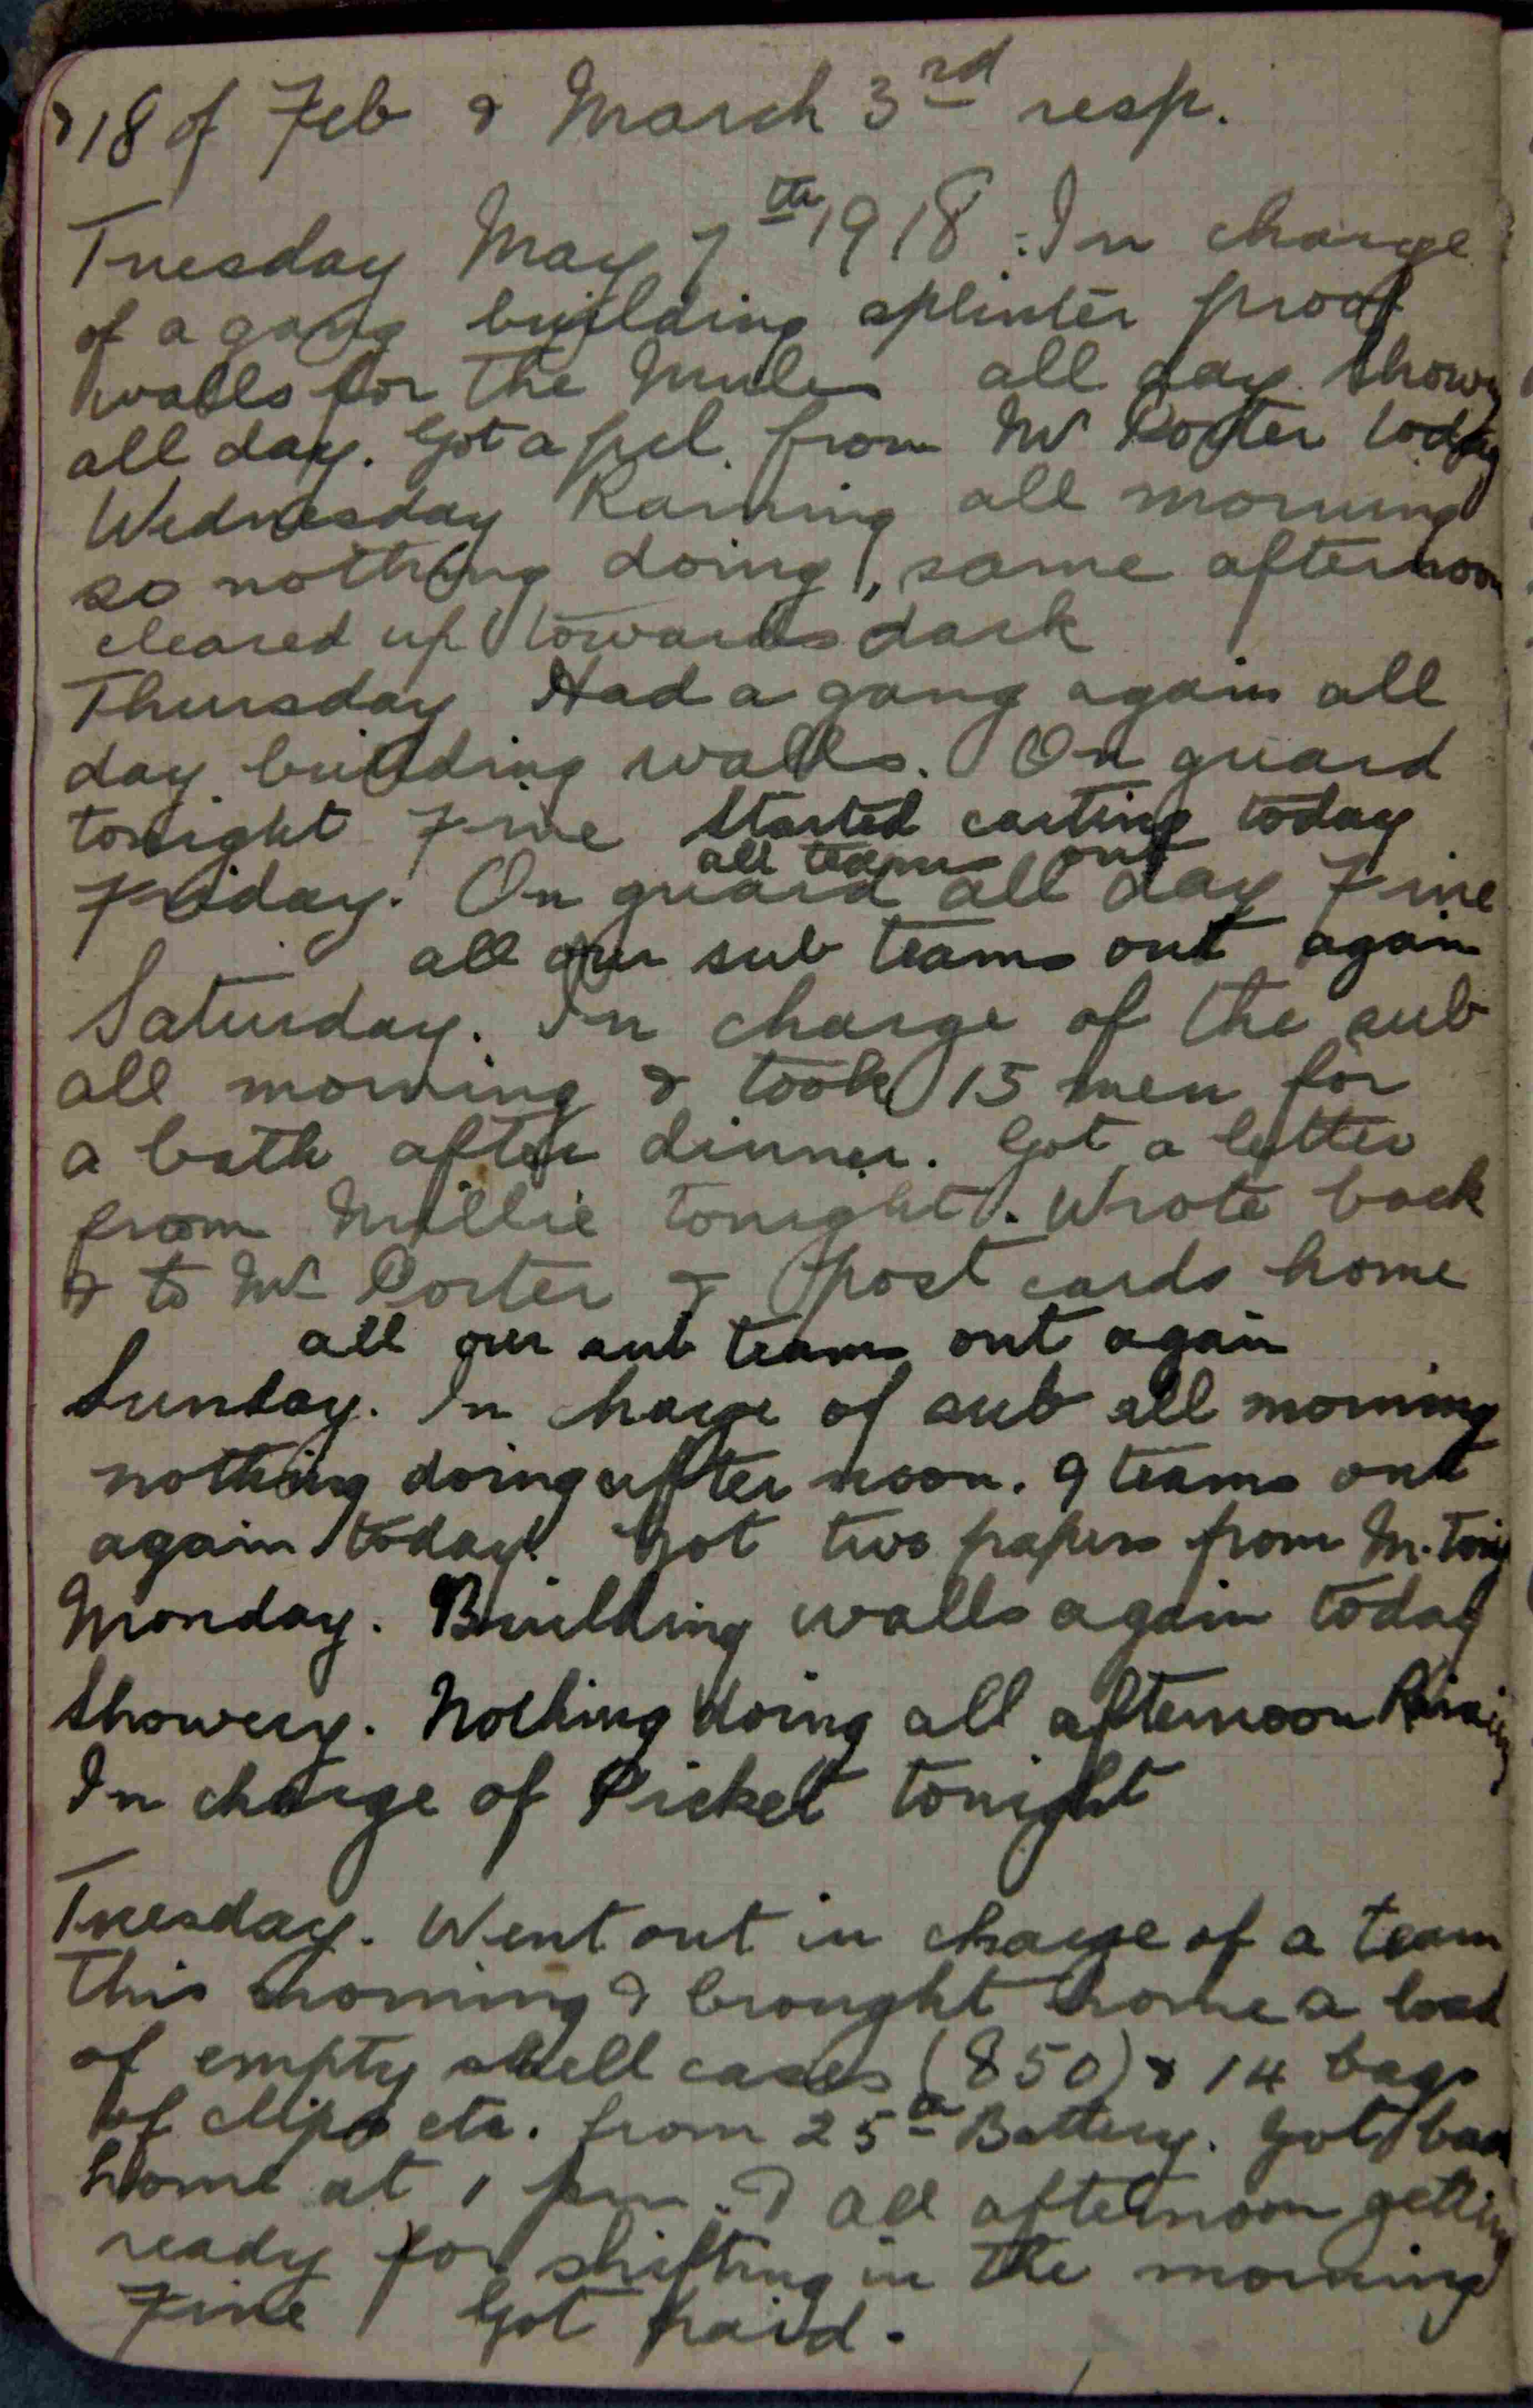 & 18 of Feb & March 3rd resp.
Tuesday May 7th 1918 : In charge
of a gang building splinter proof
walls for the Mules all day. Showy
all day. Got a pcl. from Mr Porter today
Wednesday Raining all morning
so nothing doing, same afternoon
cleared up towards dark
Thursday Had a gang again all
day building walls. On guard
tonight Fine Started carting today
all teams out
Friday. On guard all day Fine
all our sub teams out again
Saturday. In charge of the sub
all morning & took 15 men for
a bath after dinner. Got a letter
from Millie tonight. Wrote back
& to Mr Porter & post cards home
all our sub teams out again
Sunday. In charge of sub all morning
nothing doing after noon. 9 teams out
again today. Got two papers from M.
Monday. Building walls again today
Showery. Nothing doing all afternoon Raining
In charge of Picket tonight
Tuesday. Went out in charge of a team
this morning & brought home a load
of empty shell cases (850) & 14 bags
of clips etc. from 25th Battery. Got back
home at 1 pm. & all afternoon getting
ready for shifting in the morning
Fine Got paid.